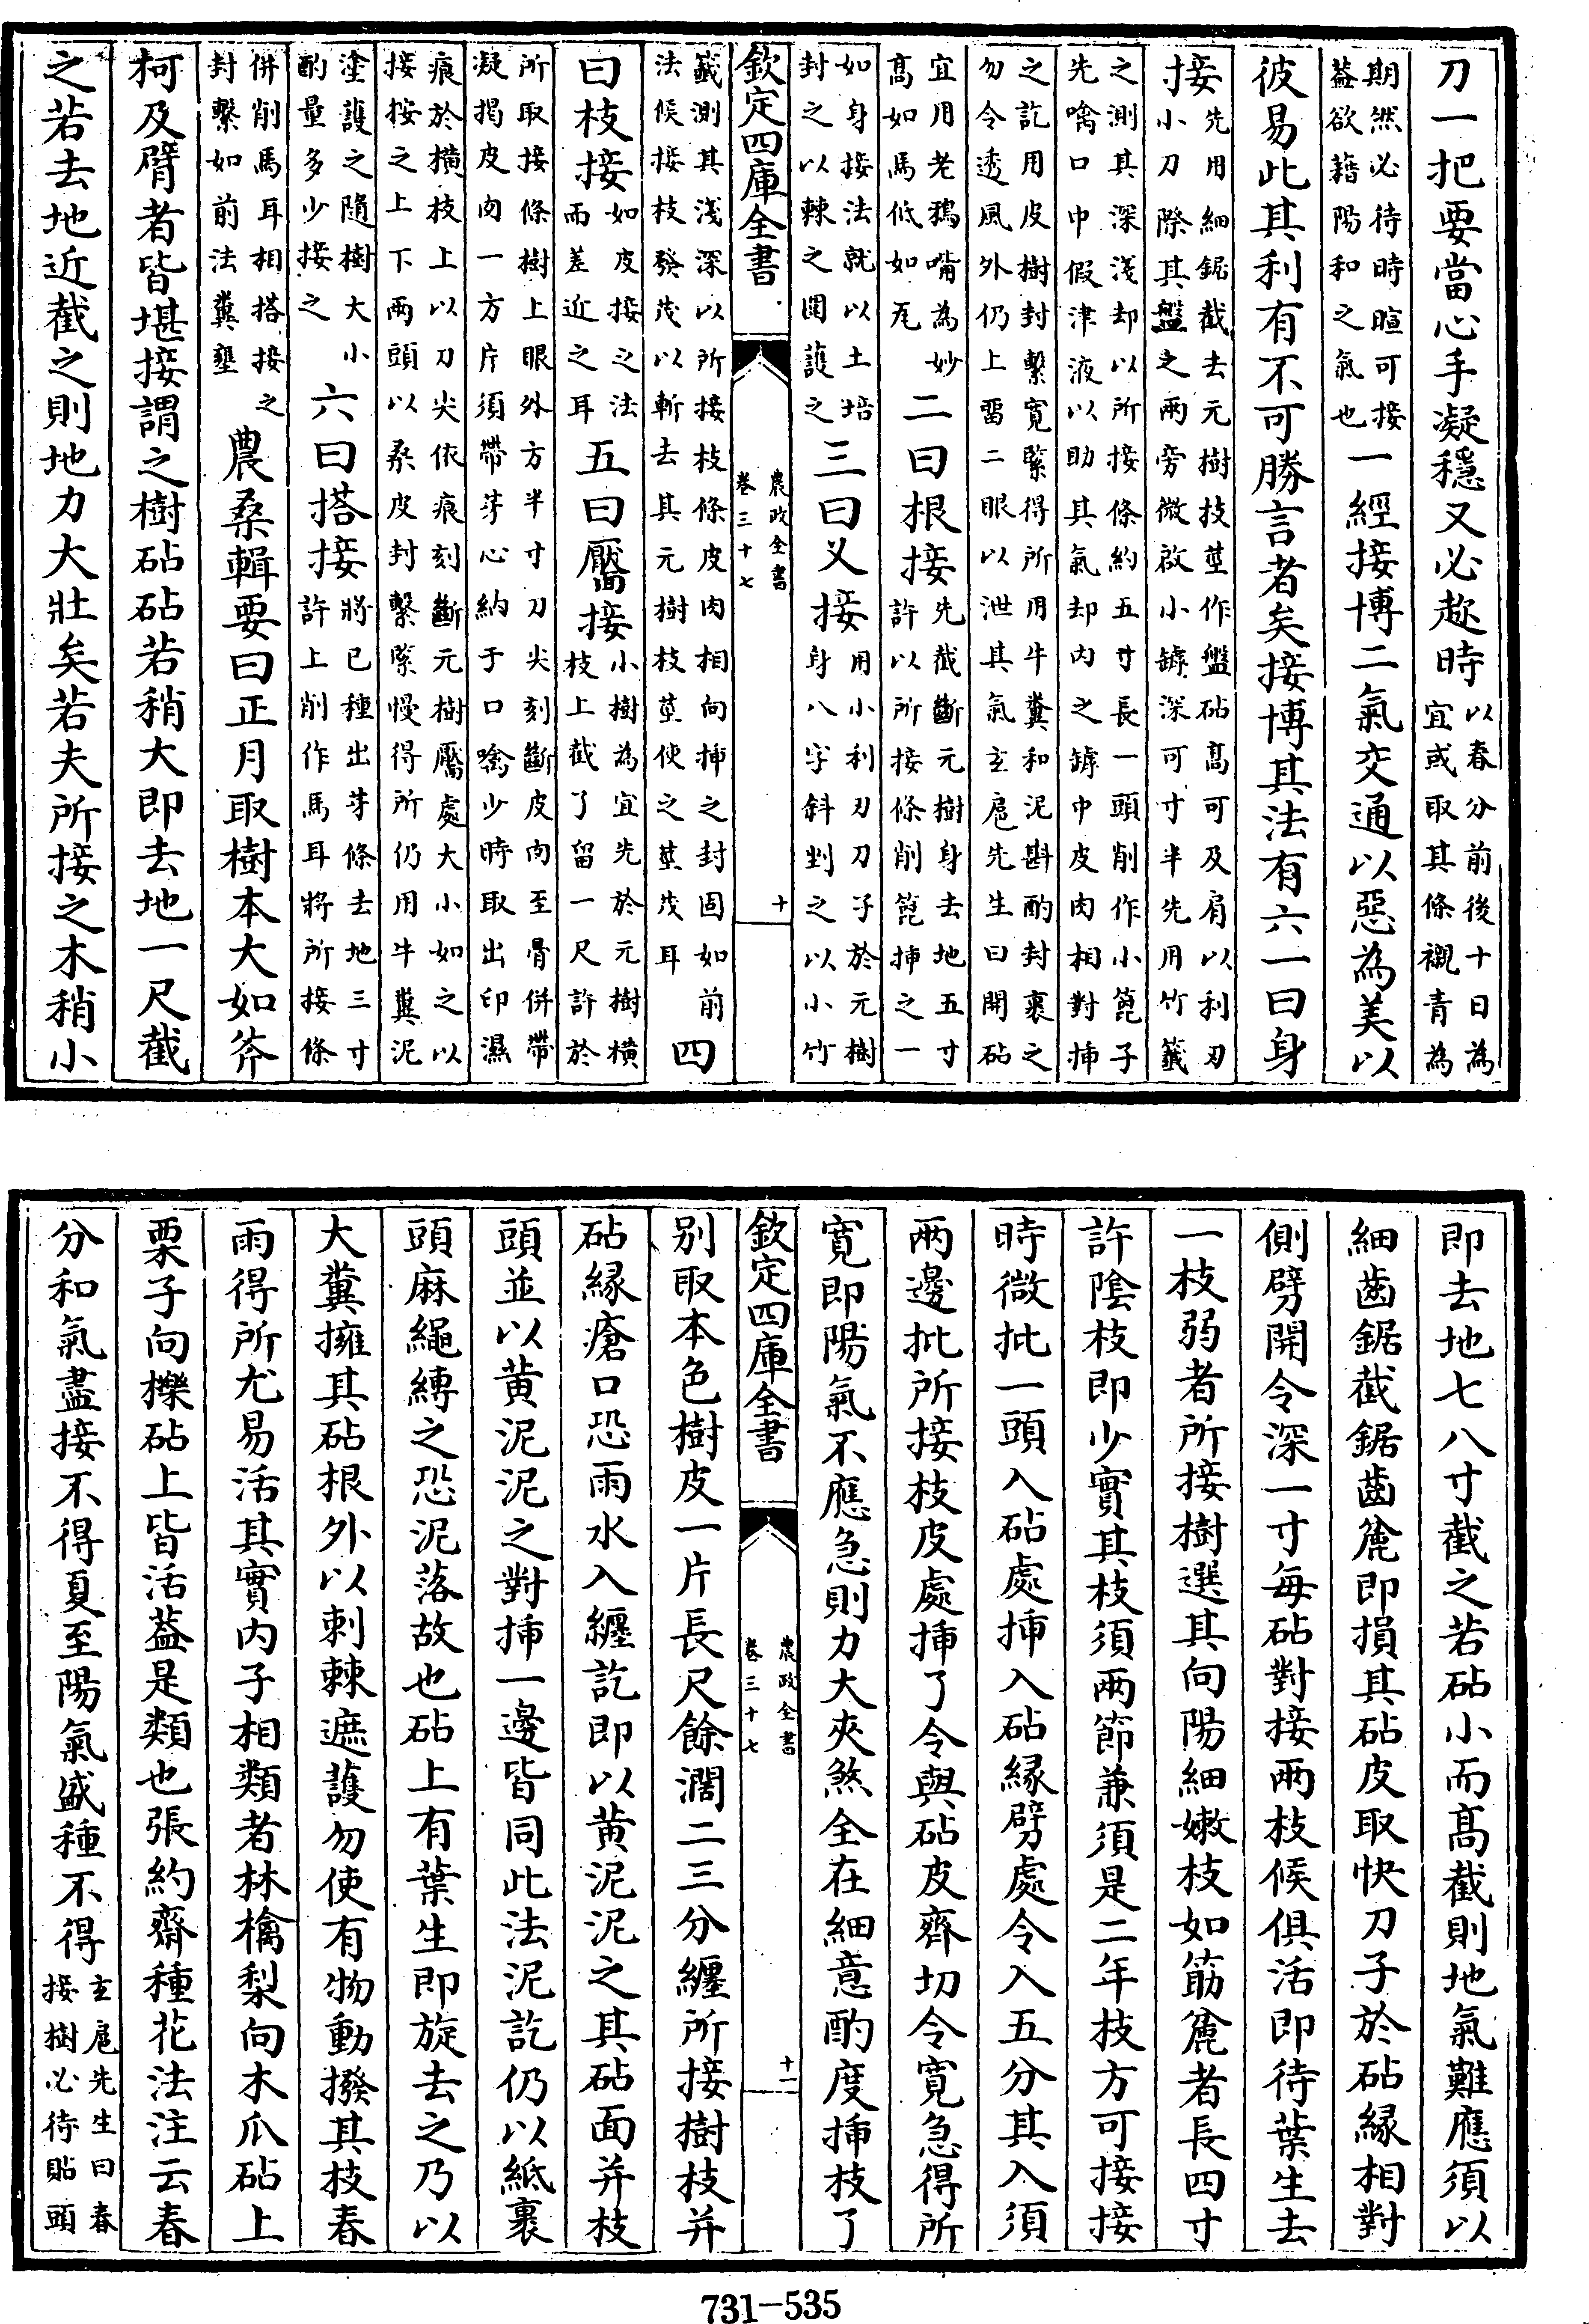 刀一把要當心手凝穩又必趂時以春分前後十日為宜或取其條襯青為
期然必待時暄可接葢欲藉陽和之氣也一經接博二氣交通以惡為美以
彼易此其利有不可勝言者矣接博其法有六一曰身
接先用細鋸截去元樹枝莖作盤砧高可及肩以利刃小刀際其盤之兩旁微啟小罅深可寸半先用竹籤
之測其深淺却以所接條約五寸長一頭削作小篦子先噙口中假津液以助其氣却內之罅中皮肉相對揷
之訖用皮樹封繫寛緊得所用牛糞和泥斟酌封裹之勿令透風外仍上留二眼以泄其氣玄扈先生曰開砧
宜用老鴉嘴為妙高如馬低如瓦二曰根接先截斷元樹身去地五寸許以所接條削篦揷之一
如身接法就以土培封之以棘之圍護之三曰乂接用小利刃刀子於元樹身八字斜剉之以小竹
籤測其淺深以所接枝條皮肉相向揷之封固如前法候接枝發茂以斬去其元樹枝莖使之莖茂耳四
曰枝接如皮接之法而差近之耳五曰靨接小樹為宜先於元樹橫枝上截了留一尺許於
所取接條樹上眼外方半寸刀尖刻斷皮肉至骨併帶凝揭皮肉一方片須帶芽心納于口噙少時取出印濕
痕於橫枝上以刀尖依痕刻斷元樹靨處大小如之以接按之上下兩頭以桑皮封繫緊慢得所仍用牛糞泥
塗護之隨樹大小酌量多少接之六曰搭接將已種出芽條去地三寸許上削作馬耳將所接條
併削馬耳相搭接之封繫如前法糞壅農桑輯要曰正月取樹本大如斧
柯及臂者皆堪接謂之樹砧砧若稍大即去地一尺截
之若去地近截之則地力大壯矣若夫所接之木稍小
欽定四庫全書
農政全書
卷三十七
十
即去地七八寸截之若砧小而髙截則地氣難應須以
細齒鋸截鋸齒麄即損其砧皮取快刀子於砧緣相對
側劈開令深一寸每砧對接兩枝候俱活即待葉生去
一枝弱者所接樹選其向陽細嫩枝如筯麄者長四寸
許陰枝即少實其枝須兩節兼須是二年枝方可接接
時微批一頭入砧處揷入砧緣劈處令入五分其入須
兩邊批所接枝皮處揷了令與砧皮齊切令寛急得所
寛即陽氣不應急則力大夾煞全在細意酌度揷枝了
別取本色樹皮一片長尺餘濶二三分纒所接樹枝并
砧緣瘡口恐雨水入纒訖即以黃泥泥之其砧面并枝
頭並以黃泥泥之對揷一邊皆同此法泥訖仍以紙裹
頭麻繩縛之恐泥落故也砧上有葉生即旋去之乃以
大糞擁其砧根外以刺棘遮護勿使有物動撥其枝春
雨得所尤易活其實內子相類者林檎梨向木瓜砧上
栗子向櫟砧上皆活葢是類也張約齋種花法注云春
分和氣盡接不得夏至陽氣盛種不得玄扈先生曰春接樹必待貼頭
欽定四庫全書
農政全書
卷三十七
十一
731-535